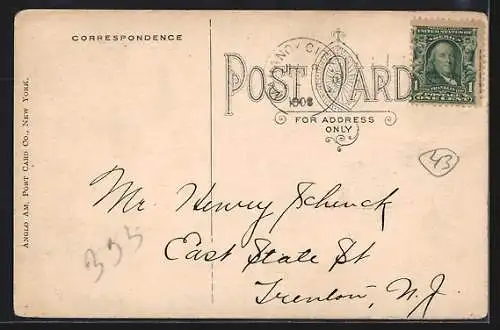 CORRESPONDENCE
POST CARD
1908
FOR ADDRESS
ONLY
UNITED STATES OF AMERICA
1 1
ONE CENT
43
Mr. Henry Schenck
East State St
Trenton, N.J.
333
ANGLO AM. POST CARD CO., NEW YORK.